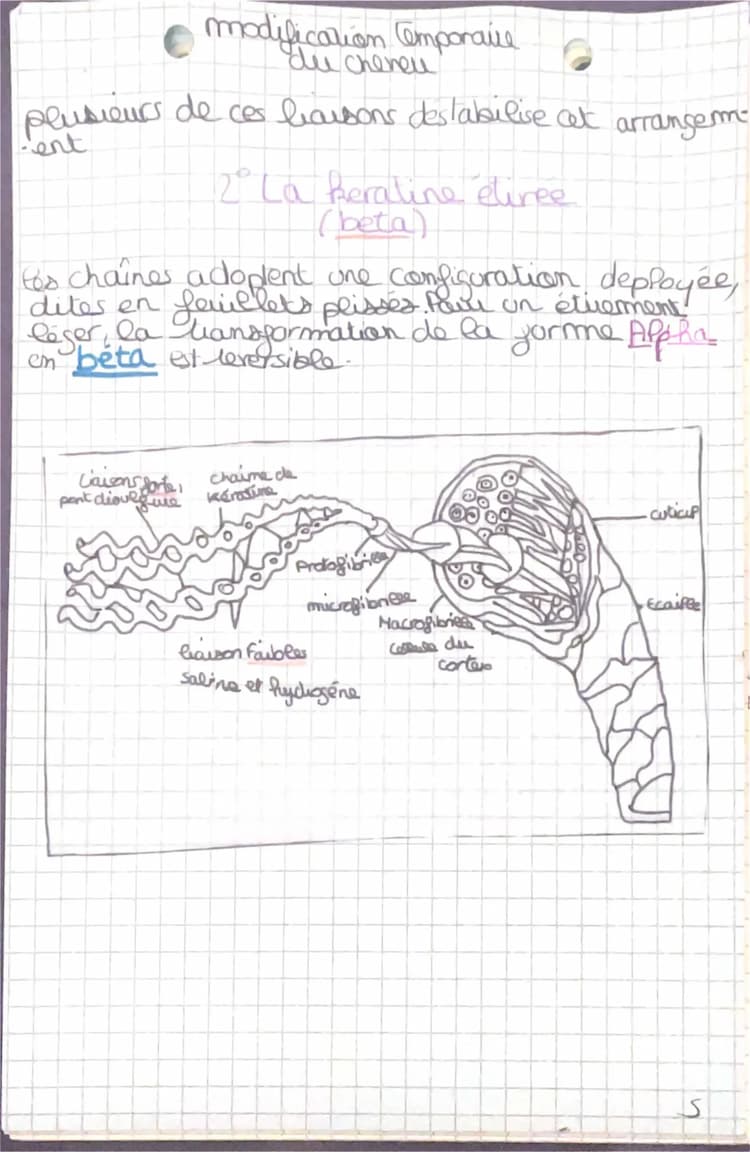 modification Temporaire
du cheveu
plusieurs de ces liaisons destabilise cet arrangem-
-ent
2° La keratine étirée
(beta)
Les chaînes adoptent une configuration deployée,
dites en feuillets plissés. Pour un étirement
léger, la transformation de la forme Alpha
en bêta est reversible.
Liaisons forte,
pont disulfure
chaine de
kératine
cuticul
Protofibrille
microfibrille
Ecaille
Macrofibrilles
du
cortex
liaison Faibles
saline et hydrogéne
5